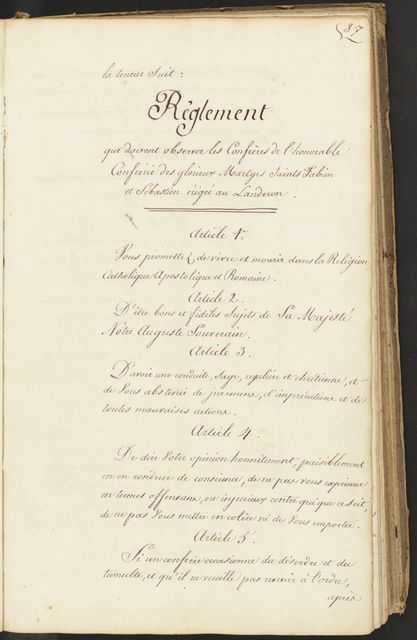 87
la teneur suit :
Règlement
que doivent observer les Confrères de l'honorable
Confrérie des glorieux Martyrs Saints Fabien
et Sébastien érigée au Landeron.
Article 1.
Vous promettez de vivre et mourir dans la Religion
Catholique Apostolique et Romaine.
Article 2.
D'être bons et fidèles Sujets de Sa Majesté
Notre Auguste Souverain.
Article 3.
D'avoir une conduite, sage, régulière et chrétienne, et
de Vous abstenir de juremens, d'imprécations et de
toutes mauvaises actions.
Article 4.
De dire Votre opinion honnêtement, paisiblement
en en conscience, de ne pas vous exprimer
en termes offensans, ou injurieux contre qui que ce soit,
de ne pas Vous mettre en colère ni de Vous emporter.
Article 5.
Si un confrère occasionne du désordre et du
tumulte, et qu'il ne veuille pas revenir à l'ordre,
après